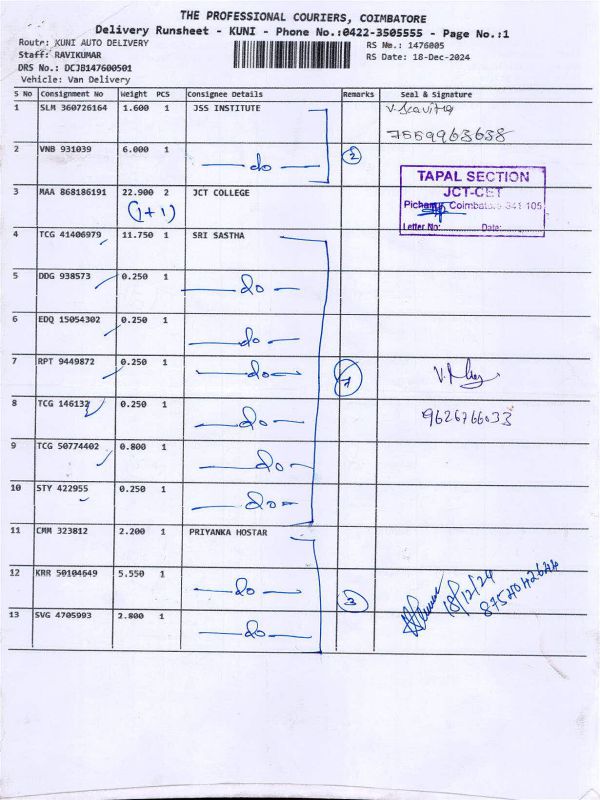 THE PROFESSIONAL COURIERS, COIMBATORE
Delivery Runsheet - KUNI - Phone No.:0422-3505555 - Page No.:1
Route: KUNI AUTO DELIVERY
RS No.: 1476005
Staff: RAVIKUMAR
RS Date: 18-Dec-2024
DRS No.: DCJB147600501
Vehicle: Van Delivery
S No Consignment No Weight PCS Consignee Details Remarks Seal & Signature
1 SLM 360726164 1.600 1 JSS INSTITUTE
7559963638
2 VNB 931039 6.000 1 do 2
TAPAL SECTION
JCT-CET
Coimbatore-641 105
Letter No: Date:
3 MAA 868186191 22.900 2 JCT COLLEGE
(1+1)
4 TCG 41406979 11.750 1 SRI SASTHA
5 DDG 938573 0.250 1 do
6 EDQ 15054302 0.250 1 do
7 RPT 9449872 0.250 1 do
8 TCG 146132 0.250 1 do 9626766033
9 TCG 50774402 0.800 1 do
10 STY 422955 0.250 1 do
11 CMM 323812 2.200 1 PRIYANKA HOSTAR
12 KRR 50104649 5.550 1 do 3
18/12/24
8754042644
13 SVG 4705993 2.800 1 do